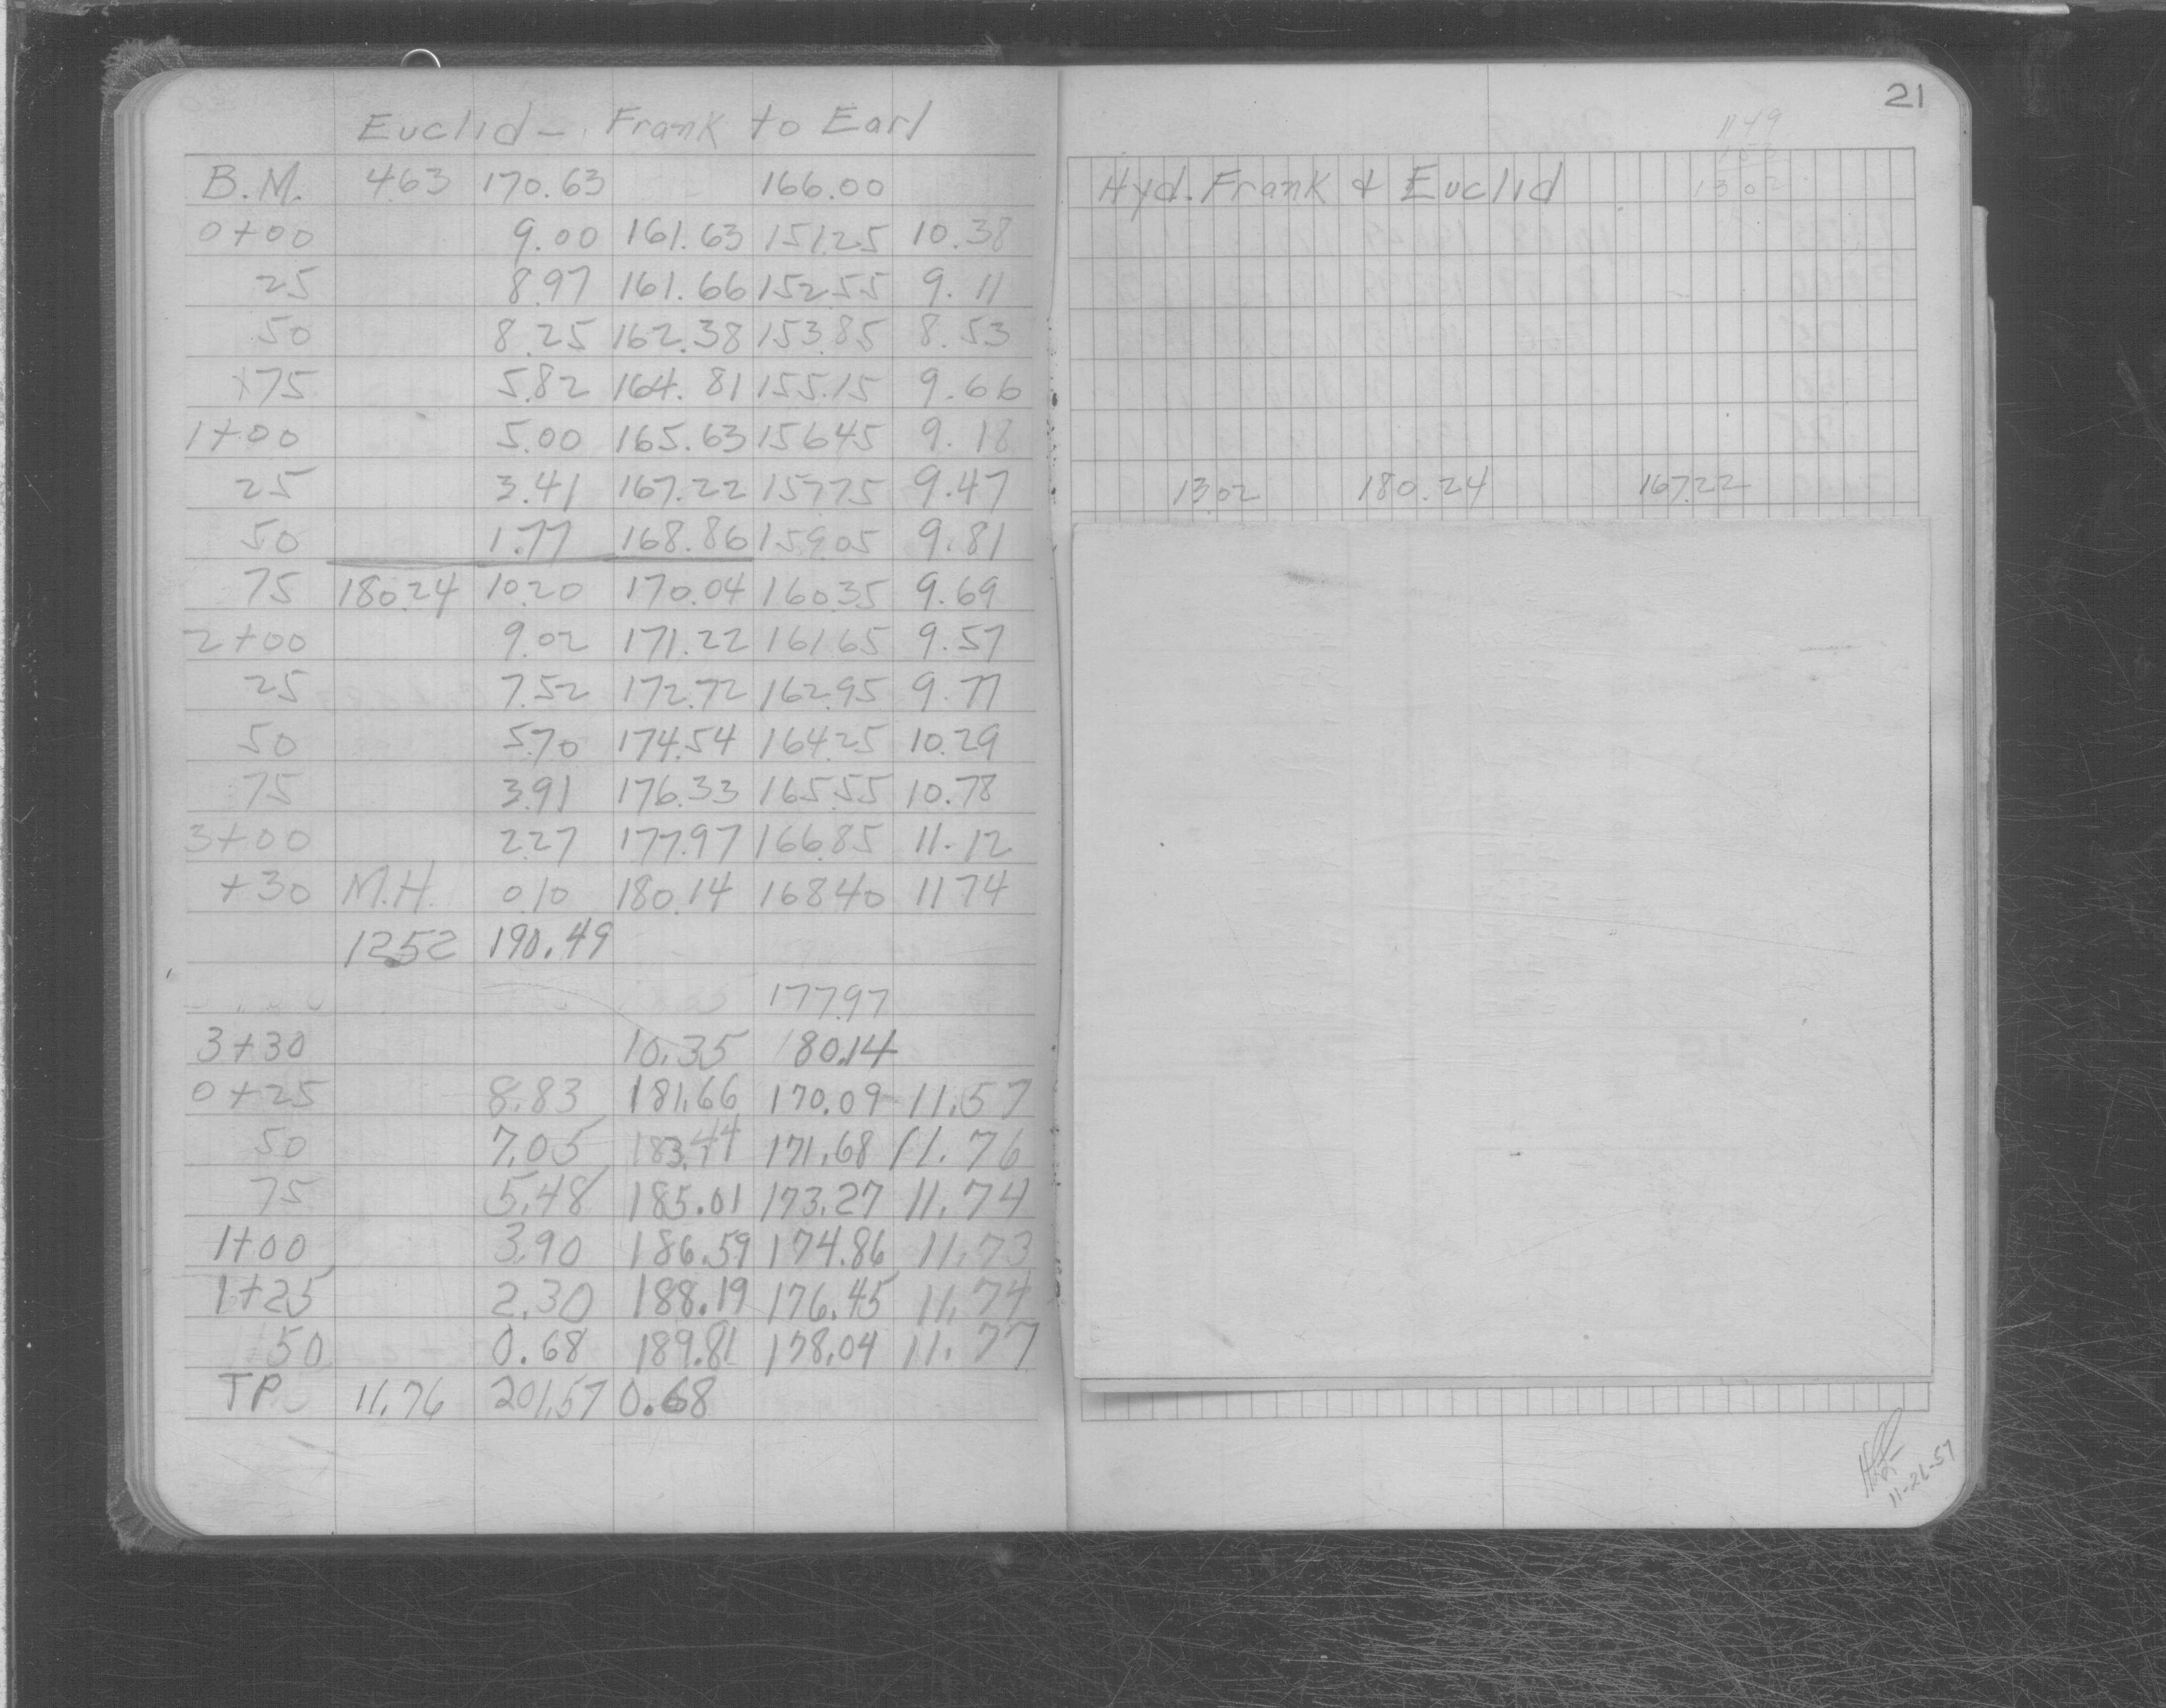 Euclid - Frank to Earl
B.M. 4.63 170.63 166.00
0+00 9.00 161.63 151.25 10.38
25 8.97 161.66 152.55 9.11
50 8.25 162.38 153.85 8.53
+75 5.82 164.81 155.15 9.66
1+00 5.00 165.63 156.45 9.18
25 3.41 167.22 157.75 9.47
50 1.77 168.86 159.05 9.81
75 180.24 10.20 170.04 160.35 9.69
2+00 9.02 171.22 161.65 9.57
25 7.52 172.72 162.95 9.77
50 5.70 174.54 164.25 10.29
75 3.91 176.33 165.55 10.78
3+00 2.27 177.97 166.85 11.12
+30 M.H. 0.10 180.14 168.40 11.74
12.52 190.49
177.97
3+30 10.35 180.14
0+25 8.83 181.66 170.09 11.57
50 7.05 183.44 171.68 11.76
75 5.48 185.01 173.27 11.74
1+00 3.90 186.59 174.86 11.73
1+25 2.30 188.19 176.45 11.74
50 0.68 189.81 178.04 11.77
TP 11.76 201.57 0.68
21
1149
1302
Hyd. Frank & Euclid
13.02 180.24 167.22
11-26-57